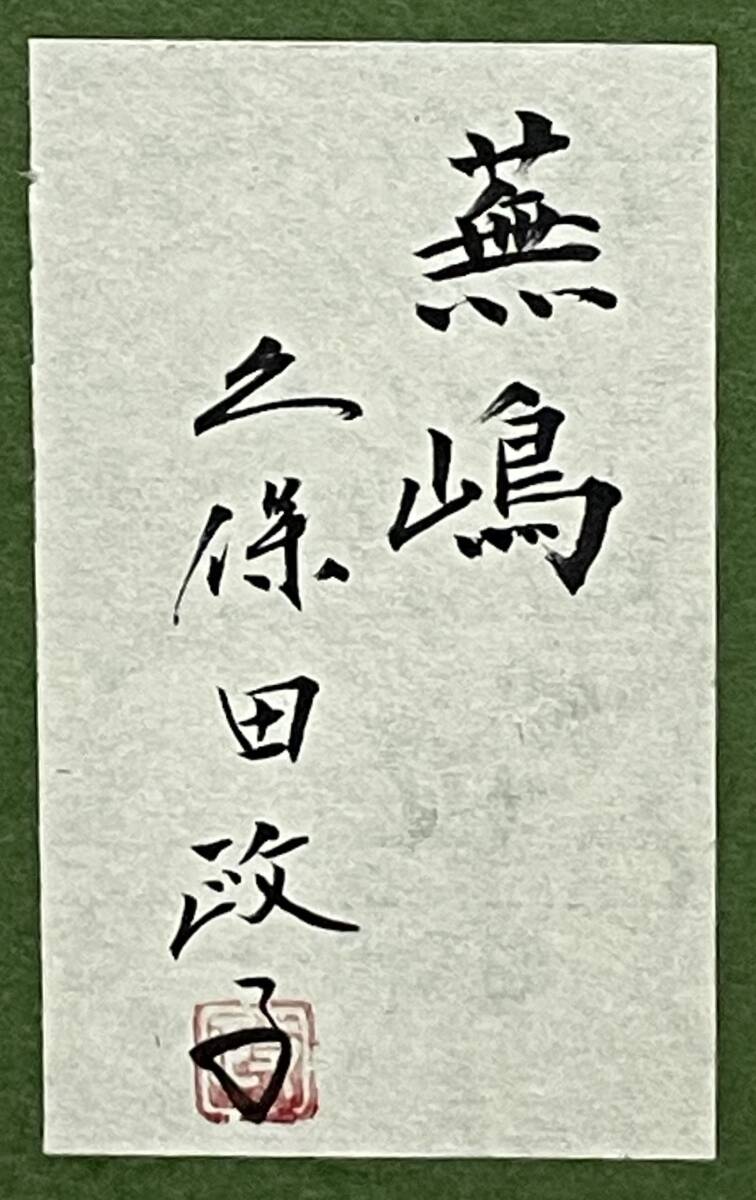 蕪嶋
久保田政子